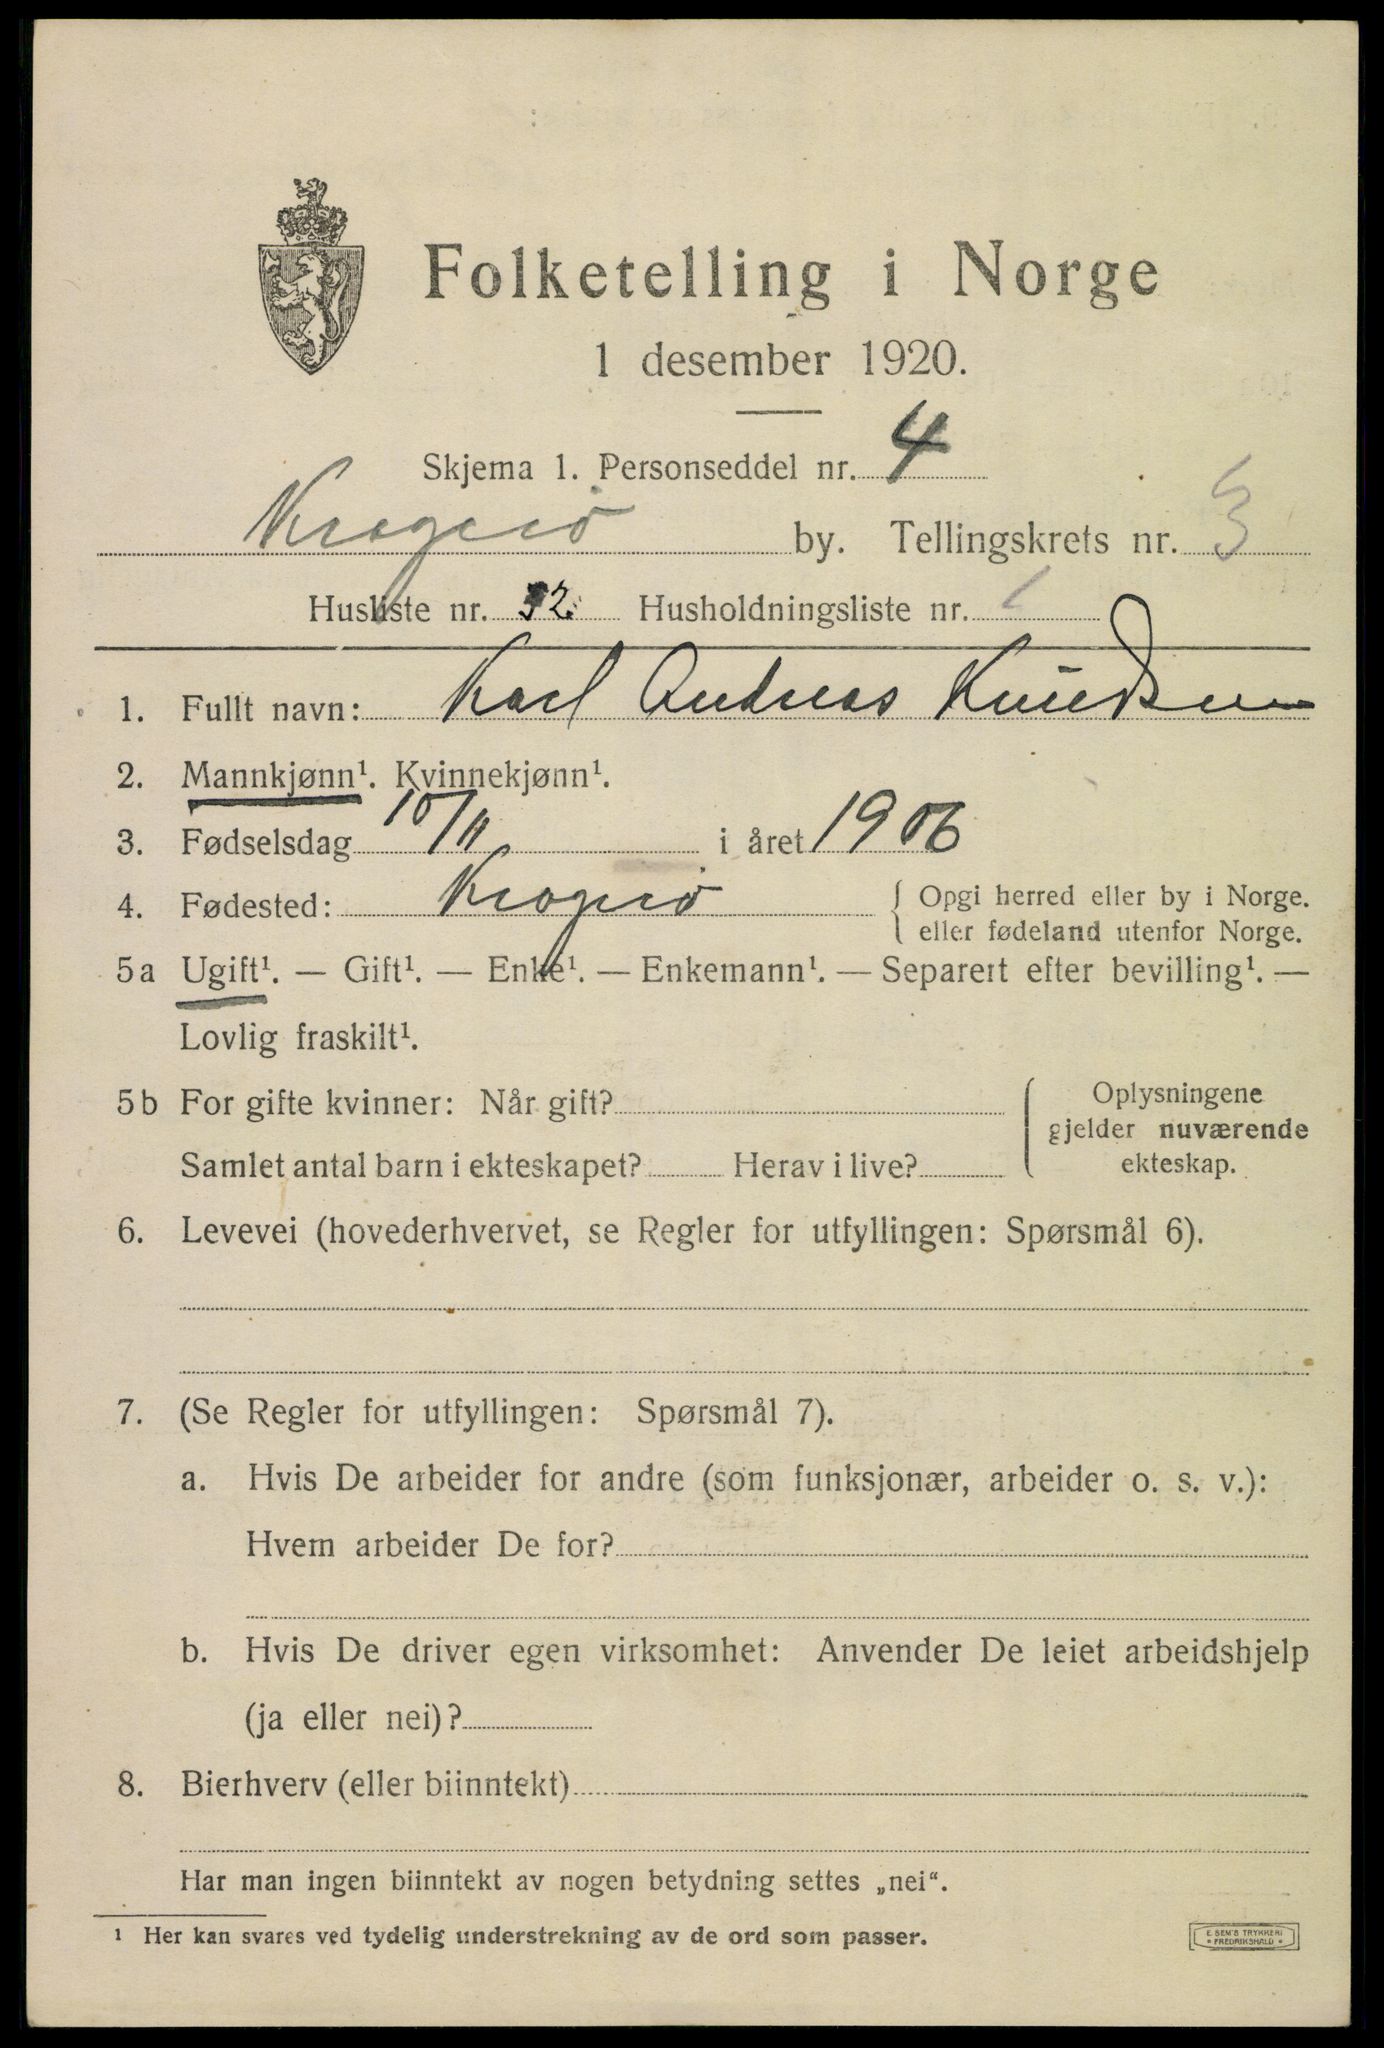 Folketelling i Norge
1 desember 1920.
Skjema 1. Personseddel nr. 4
Kragerö by. Tellingskrets nr. 3
Husliste nr. 32 Husholdningsliste nr. 1
1. Fullt navn: Karl Andreas Knudsen
2. Mannkjønn¹. Kvinnekjønn¹.
3. Fødselsdag 10/11 i året 1906
4. Fødested: Kragerö { Opgi herred eller by i Norge.
eller fødeland utenfor Norge.
5a Ugift¹. — Gift¹. — Enke¹. — Enkemann¹. — Separert efter bevilling¹. —
Lovlig fraskilt¹.
5b For gifte kvinner: Når gift?
Samlet antal barn i ekteskapet? Herav i live?
Oplysningene
gjelder nuværende
ekteskap.
6. Levevei (hovederhvervet, se Regler for utfyllingen: Spørsmål 6).
7. (Se Regler for utfyllingen: Spørsmål 7).
a. Hvis De arbeider for andre (som funksjonær, arbeider o. s. v.):
Hvem arbeider De for?
b. Hvis De driver egen virksomhet: Anvender De leiet arbeidshjelp
(ja eller nei)?
8. Bierhverv (eller biinntekt)
Har man ingen biinntekt av nogen betydning settes „nei“.
¹ Her kan svares ved tydelig understrekning av de ord som passer.
E. SEM'S TRYKKERI
* FREDRIKSHALD *